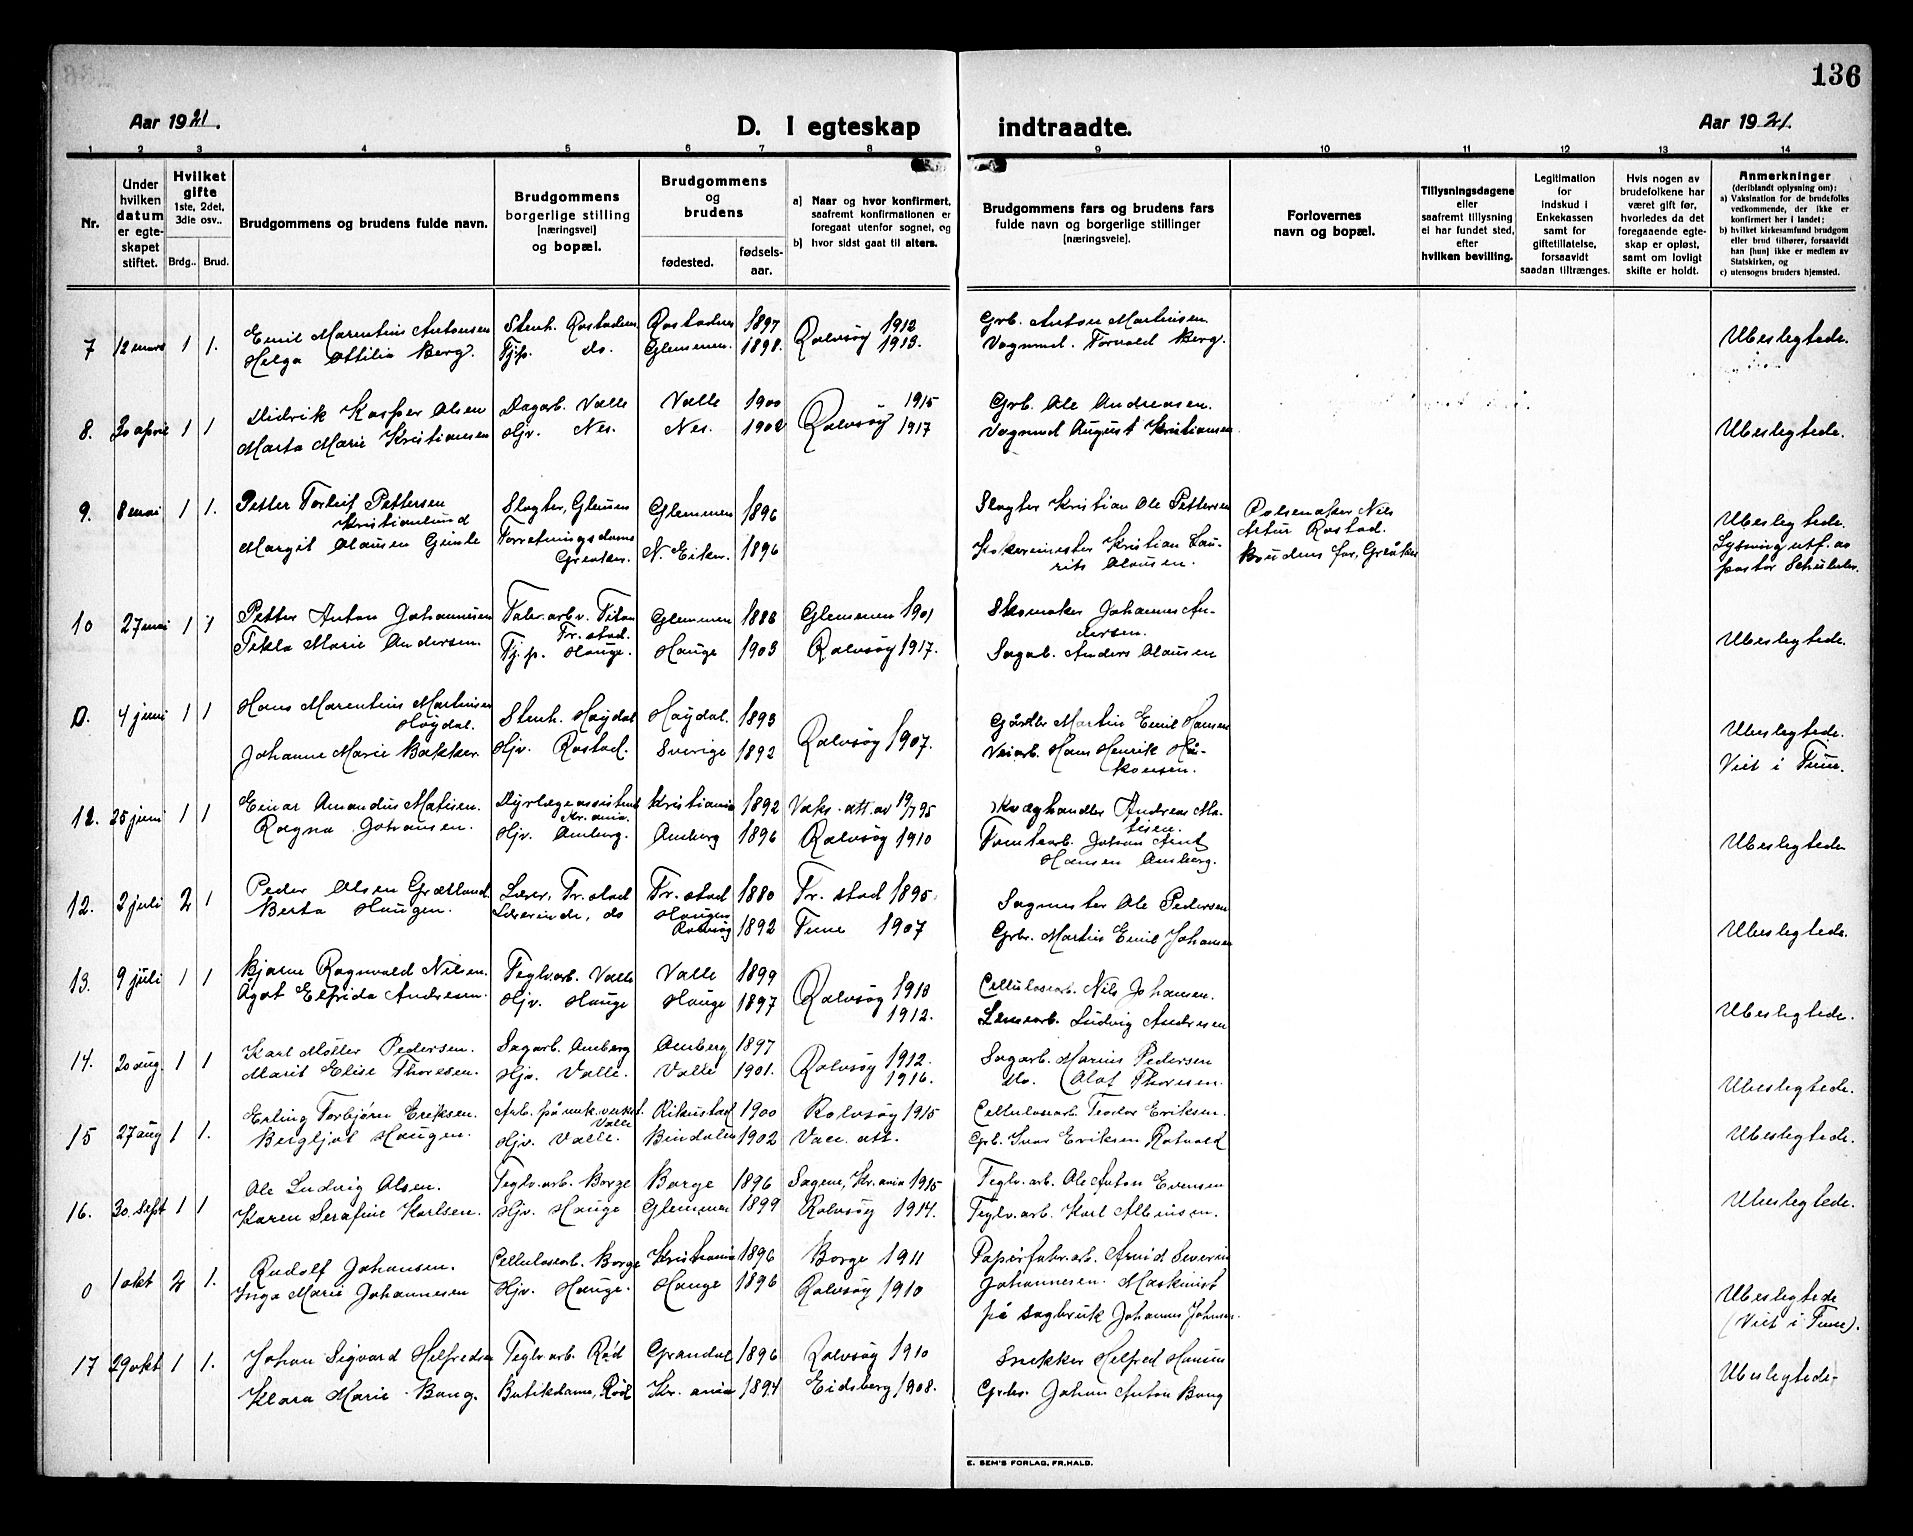 136
Aar 1921.
D. I egteskap indtraadte.
Aar 1921.
1 2 3 4 5 6 7 8 9 10 11 12 13 14
Nr.
Under hvilken datum er egteskapet stiftet.
Hvilket gifte 1ste, 2det, 3die osv..
Brdg.. Brud.
Brudgommens og brudens fulde navn.
Brudgommens borgerlige stilling [næringsvei] og bopæl.
Brudgommens og brudens
fødested.
fødselsaar.
a) Naar og hvor konfirmert, saafremt konfirmationen er foregaat utenfor sognet, og
b) hvor sidst gaat til alters.
Brudgommens fars og brudens fars fulde navn og borgerlige stillinger [næringsveie].
Forlovernes navn og bopæl.
Tillysningsdagene eller saafremt tillysning ei har fundet sted, efter hvilken bevilling.
Legitimation for indskud i Enkekassen samt for giftetillatelse, forsaavidt saadan tiltrænges.
Hvis nogen av brudefolkene har været gift før, hvorledes da det foregaaende egteskap er opløst, samt om lovligt skifte er holdt.
Anmerkninger
(deriblandt oplysning om):
a) Vaksination for de brudefolks vedkommende, der ikke er konfirmert her i landet;
b) hvilket kirkesamfund brudgom eller brud tilhører, forsaavidt han [hun] ikke er medlem av Statskirken, og
c) utensogns bruders hjemsted.
7 12 mars 1 1. Emil Marentius Antonsen Stenh. Rostadnes Rostadnes 1897 Rolvsøy 1912 Grb. Anton Martinsen Ubeslegtede.
Helga Ottilia Berg. Tjp. do. Glemmen. 1898. 1913. Vognmd. Torvald Berg.
8. 30 april 1 1 Didrik Kasper Olsen Dagarb. Valle Valle 1900 Rolvsøy 1915 Grb. Ole Andreasen. Ubeslegtede.
Marta Marie Kristiansen Hjv. Nes. Nes. 1902 1917 Vognmd August Kristiansen
9. 8 mai 1 1. Petter Torleif Pettersen Kristianlund Slagter, Glemmen Glemmen 1896 Slagter Kristian Ole Pettersen Pølsemaker Nils Artur Rostad. Ubeslegtede.
Margit Olausen Gunle Forretningsdame Greaker. N. Eiker. 1896 Kokermester Kristian Laurits Olausen. Brudens far, Greåker Lysning utf. av pastor Schulder.
10 27 mai 1 1 Petter Anton Johannesen Fabr.arb. v. Titan Fr.stad. Glemmen 1888 Glemmen 1901 Skomaker Johannes Andersen. Ubeslegtede.
Tekla Marie Andersen. Tj.p. Hauge. Hauge 1903 Rolvsøy 1917. Sagab. Anders Olausen
0. 4 juni 1 1 Hans Marentius Martinsen Høydal. Stenh. Høydal Høydal. 1893 Rolvsøy 1907. Gårdbr Martin Emil Hansen Ubeslegtede.
Johanne Marie Bakker. Hjv. Rostad. Sverige 1892 Veiarb. Hans Henrik Håkonsen. Viet i Tune.
12. 25 juni 1 1 Einar Amandus Matisen. Dyrlægeassistent Kr.ania. Kristiania 1892 Vaks. att. av 19/7 95 Kvæghandler Andreas Matisen. Ubeslegtede
Ragna Johansen. Hjv. Amberg. Amberg 1896 Rolvsøy 1910 Tomtearb. Johan Arnt Hansen Amberg.
12. 2 juli 2 1 Peder Olsen Grætland Lærer, Fr.stad Fr.stad 1880 Fr.stad 1895. Sagmester Ole Pedersen Ubeslegtede.
Berta Haugen. Lærerinde, do Haugen Rolvsøy 1892 Tune 1907 Grbr. Martin Emil Johansen
13. 9 juli 1 1 Bjarne Ragnvald Nilsen. Teglv.arb. Valle Valle 1899 Rolvsøy 1913 Cellulosearb. Nils Johansen. Ubeslegtede.
Agot Elfrida Andresen. Hjv. Hauge Hauge 1897 1912. Lænsearb. Ludvig Andresen
14. 20 aug. 1 1 Karl Møller Pedersen. Sagarb. Amberg Amberg 1897 Rolvsøy 1912. Sagarb. Marius Pedersen
Marit Elise Thoresen. Hjv. Valle. Valle 1901. 1916. Do. Olaf Thoresen. Ubeslegtede.
15 27 aug 1 1. Erling Torbjørn Eriksen. Arb. på mek. verkst. Valle Rikustad 1900 Rolvsøy 1915 Cellulosearb. Teodor Eriksen. Ubeslegtede.
Bergljot Haugen. Hjv. Valle. Bindalen 1902 Vacc. att. Grb. Ivar Eriksen Rotvold
16. 30. sept 1 1 Ole Ludvig Olsen. Teglv.arb. Borge Borge 1896 Sagene, Kr.ania 1915 Teglv.arb. Ole Anton Evensen Ubeslegtede.
Karen Serafine Karlsen. Hjv. Hauge Glemmen 1899 Rolvsøy 1914. Teglv.arb. Karl Albinsen.
0 1 okt 2 1. Rudolf Johansen. Cellulosearb. Borge Kristiania 1896 Borge 1911 Papirfabr.arb. Arvid Severin Johannesen.
Inga Marie Johannesen Hjv. Hauge. Hauge 1896 Rolvsøy 1910 Maskinist på sagbruk Johannes Johnsen. Ubeslegtede (Viet i Tune).
17 29 okt 1 1. Johan Sigvard Helfredsen Teglv.arb. Rød Grandal 1896 Rolvsøy 1910 Snekker Helfred Hansen Ubeslegtede.
Klara Marie Bang. Butikdame, Rød Kr.ania 1894 Eidsberg 1908. Grbr. Johan Anton Bang
E. SEM'S FORLAG, FR.HALD.